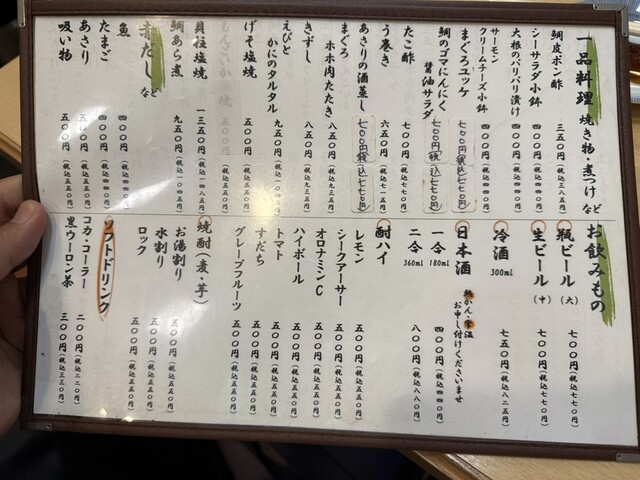 一品料理 焼き物・煮つけ など
鯛皮ポン酢 三五〇円（税込三八五円）
シーサラダ小鉢 四〇〇円（税込四四〇円）
大根のパリパリ漬け 四〇〇円（税込四四〇円）
サーモン
クリームチーズ小鉢 四〇〇円（税込四四〇円）
まぐろユッケ 七〇〇円（税込七七〇円）
鯛のゴマにんにく
醤油サラダ 七〇〇円（税込七七〇円）
たこ酢 七〇〇円（税込七七〇円）
う巻き 六五〇円（税込七一五円）
あさりの酒蒸し 七〇〇円（税込七七〇円）
まぐろ
ホホ肉たたき 八五〇円（税込九三五円）
きずし 八五〇円（税込九三五円）
えびと
かにのタルタル 九五〇円（税込一〇四五円）
げそ塩焼 五〇〇円（税込五五〇円）
貝柱塩焼 一三五〇円（税込一四八五円）
鯛あら煮 九五〇円（税込一〇四五円）
赤だし など
魚 四〇〇円（税込四四〇円）
たまご 四〇〇円（税込四四〇円）
あさり 五〇〇円（税込五五〇円）
吸い物 五〇〇円（税込五五〇円）
お飲みもの
瓶ビール（大） 七〇〇円（税込七七〇円）
生ビール（中） 七〇〇円（税込七七〇円）
冷酒 300ml 七五〇円（税込八二五円）
日本酒 熱かん・常温
お申し付けくださいませ
一合 180ml 四〇〇円（税込四四〇円）
二合 360ml 八〇〇円（税込八八〇円）
酎ハイ
レモン 五〇〇円（税込五五〇円）
シークアーサー 五〇〇円（税込五五〇円）
オロナミンC 五〇〇円（税込五五〇円）
ハイボール 五〇〇円（税込五五〇円）
トマト 五〇〇円（税込五五〇円）
すだち 五〇〇円（税込五五〇円）
グレープフルーツ 五〇〇円（税込五五〇円）
焼酎（麦・芋）
お湯割り 五〇〇円（税込五五〇円）
水割り 五〇〇円（税込五五〇円）
ロック 五〇〇円（税込五五〇円）
ソフトドリンク
コカ・コーラー 二〇〇円（税込二二〇円）
黒ウーロン茶 三〇〇円（税込三三〇円）